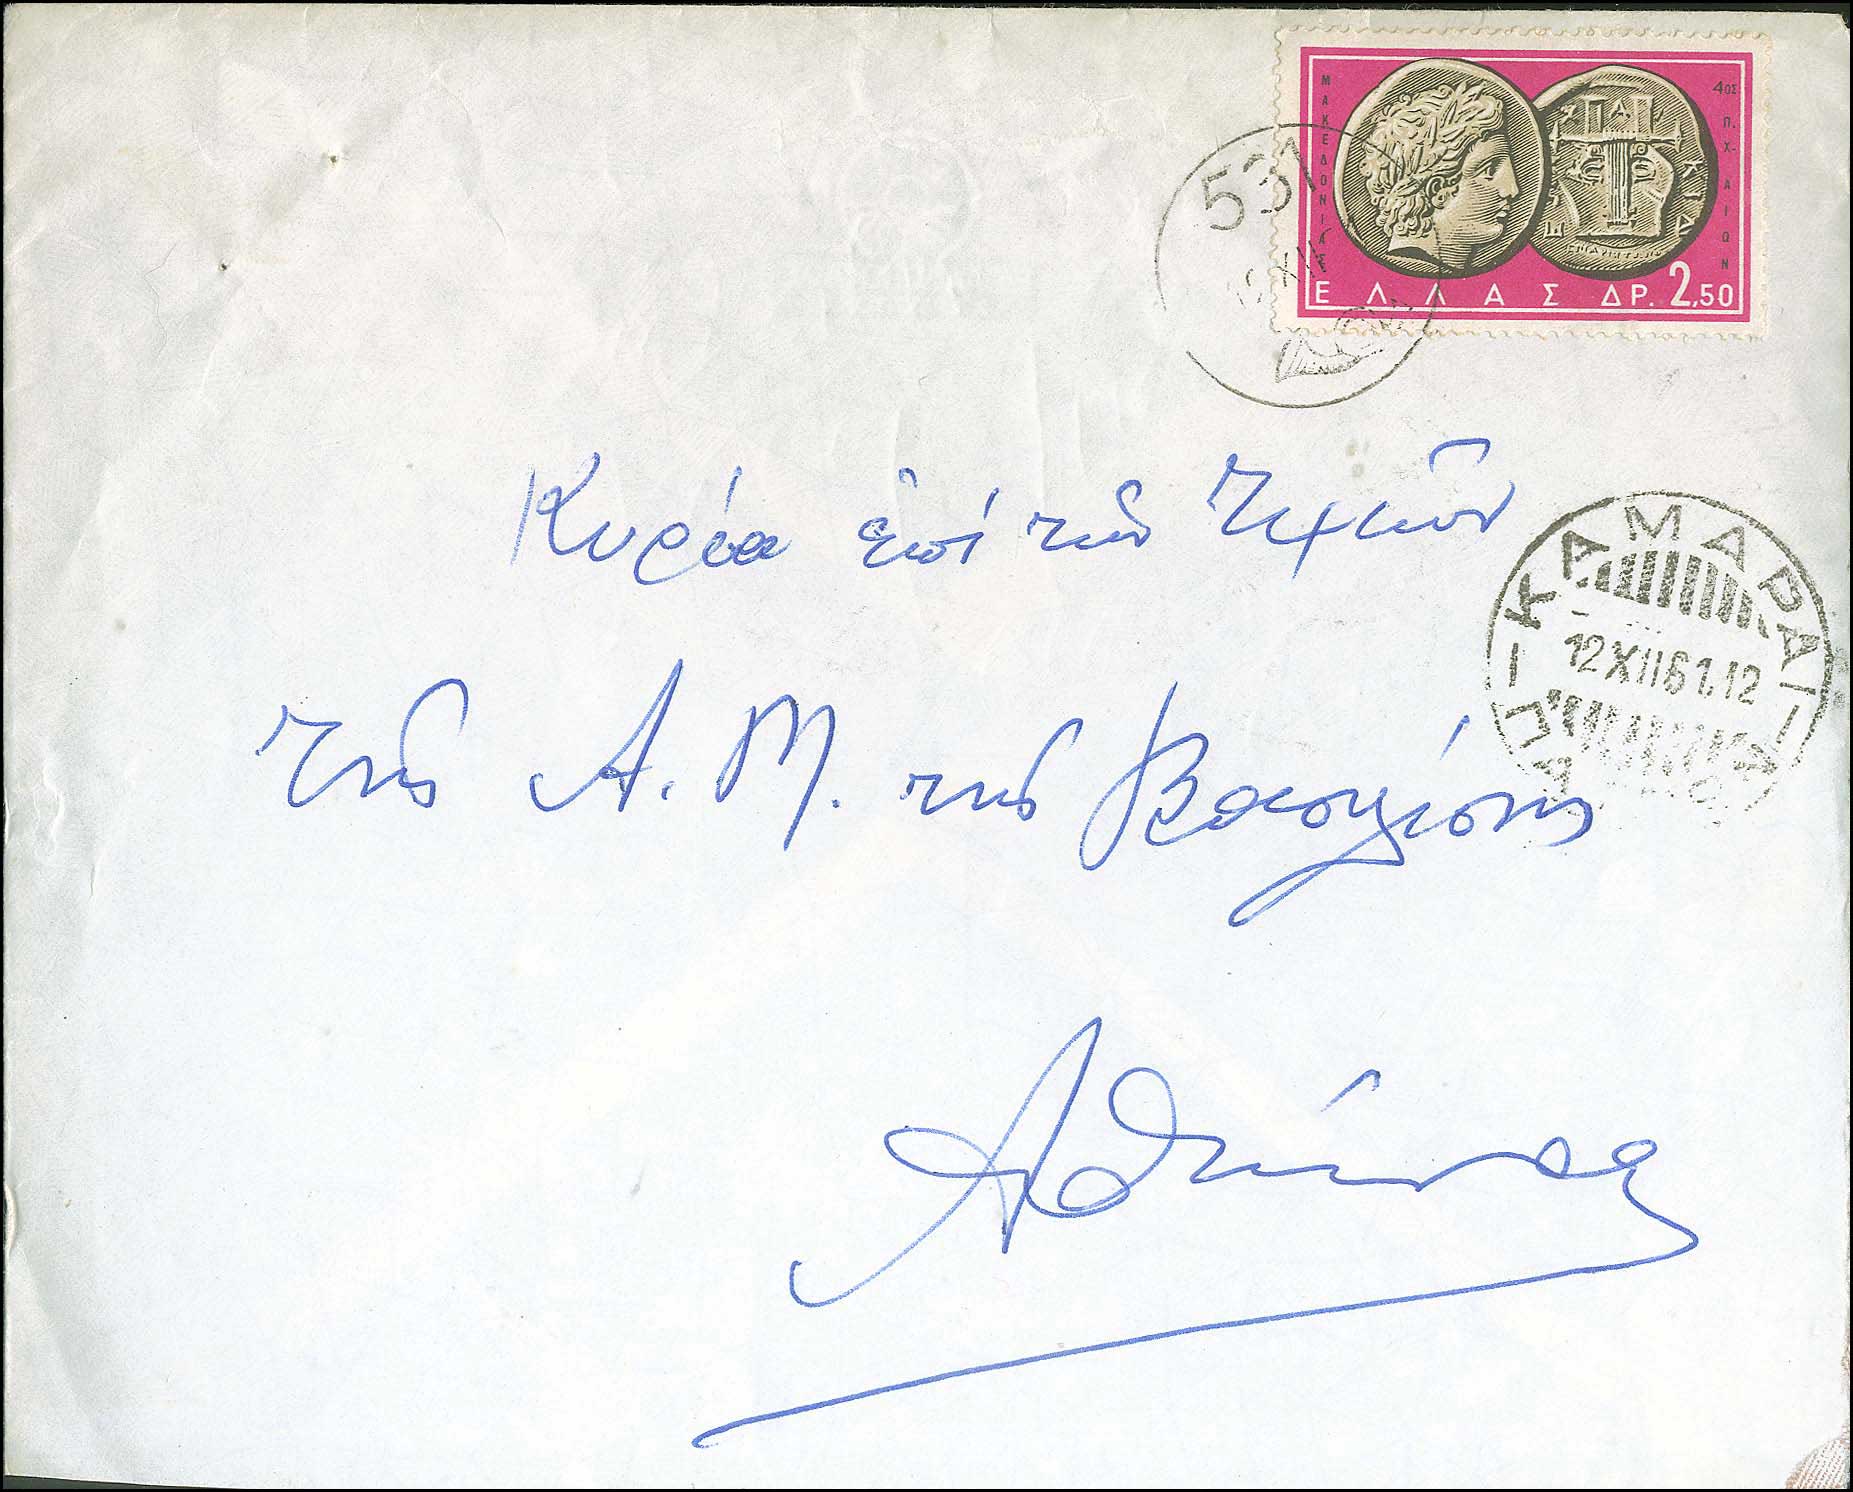 ΜΑΚΕΔΟΝΙΑΣ
4ΟΣ Π. Χ. ΑΙΩΝ
ΕΛΛΑΣ ΔΡ. 2,50
531
ΚΑΜΑΡΑΙ
12 XII 61.12
Κυρίαν ἐπί τῶν Τιμῶν
τῆς Α. Μ. τῆς Βασιλίσσης
Ἀθήνας